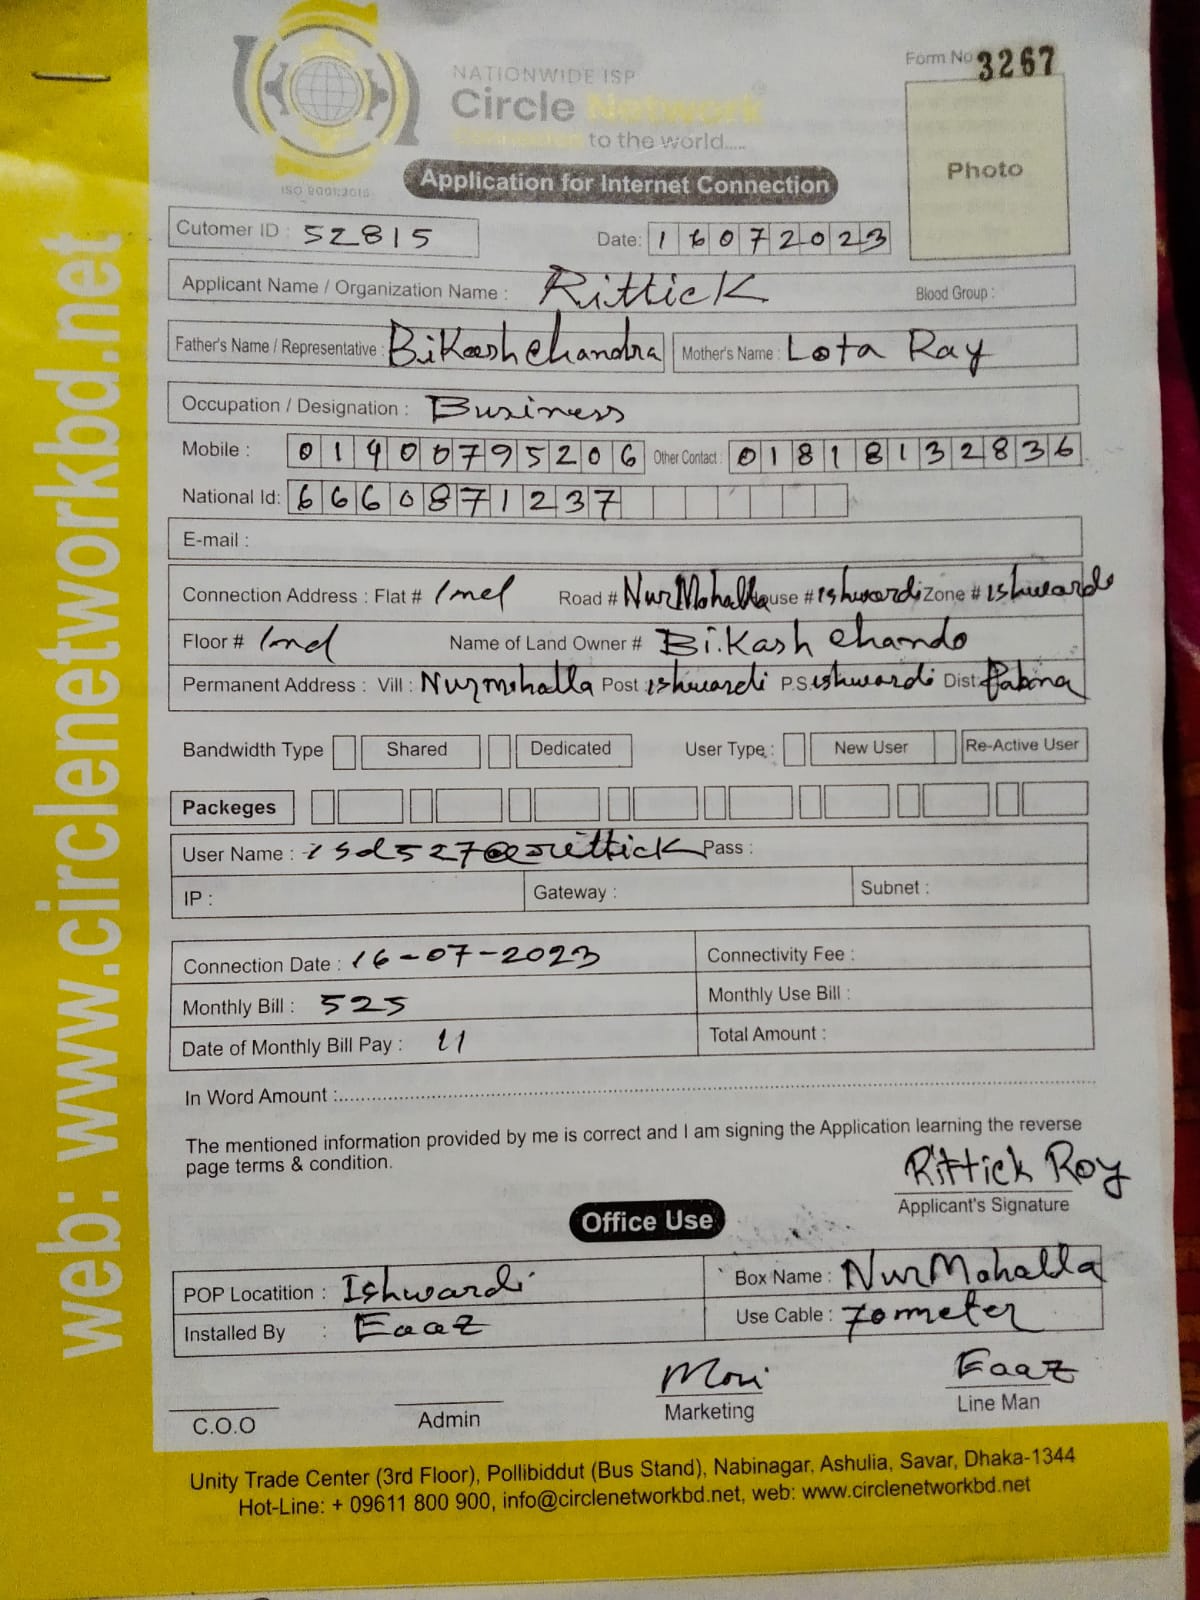 Form No 3267
NATIONWIDE ISP
Circle Network
Connected to the world.....
ISO 9001:2015
Photo
Application for Internet Connection
Cutomer ID : 52815 Date: 16072023
Applicant Name / Organization Name : Rittick Blood Group :
Father's Name / Representative : Bikash Chandra Mother's Name : Lota Ray
Occupation / Designation : Business
Mobile : 01400795206 Other Contact : 01818132836
National Id: 6660871237
E-mail :
Connection Address : Flat # Road # NurMohalla House # ishwardi Zone # ishwardi
Floor # Name of Land Owner # Bikash Chando
Permanent Address : Vill : Nurmohalla Post ishwardi P.S ishwardi Dist: Pabna
Bandwidth Type Shared Dedicated User Type : New User Re-Active User
Packeges
User Name : isd527@rittick Pass :
IP : Gateway : Subnet :
Connection Date : 16-07-2023 Connectivity Fee :
Monthly Bill : 525 Monthly Use Bill :
Date of Monthly Bill Pay : 11 Total Amount :
In Word Amount :
The mentioned information provided by me is correct and I am signing the Application learning the reverse
page terms & condition.
Rittick Roy
Applicant's Signature
Office Use
POP Locatition : Ishwardi Box Name : NurMohalla
Installed By : Eaaz Use Cable : 70meter
Moni Eaaz
C.O.O Admin Marketing Line Man
Unity Trade Center (3rd Floor), Pollibiddut (Bus Stand), Nabinagar, Ashulia, Savar, Dhaka-1344
Hot-Line: + 09611 800 900, info@circlenetworkbd.net, web: www.circlenetworkbd.net
web: www.circlenetworkbd.net